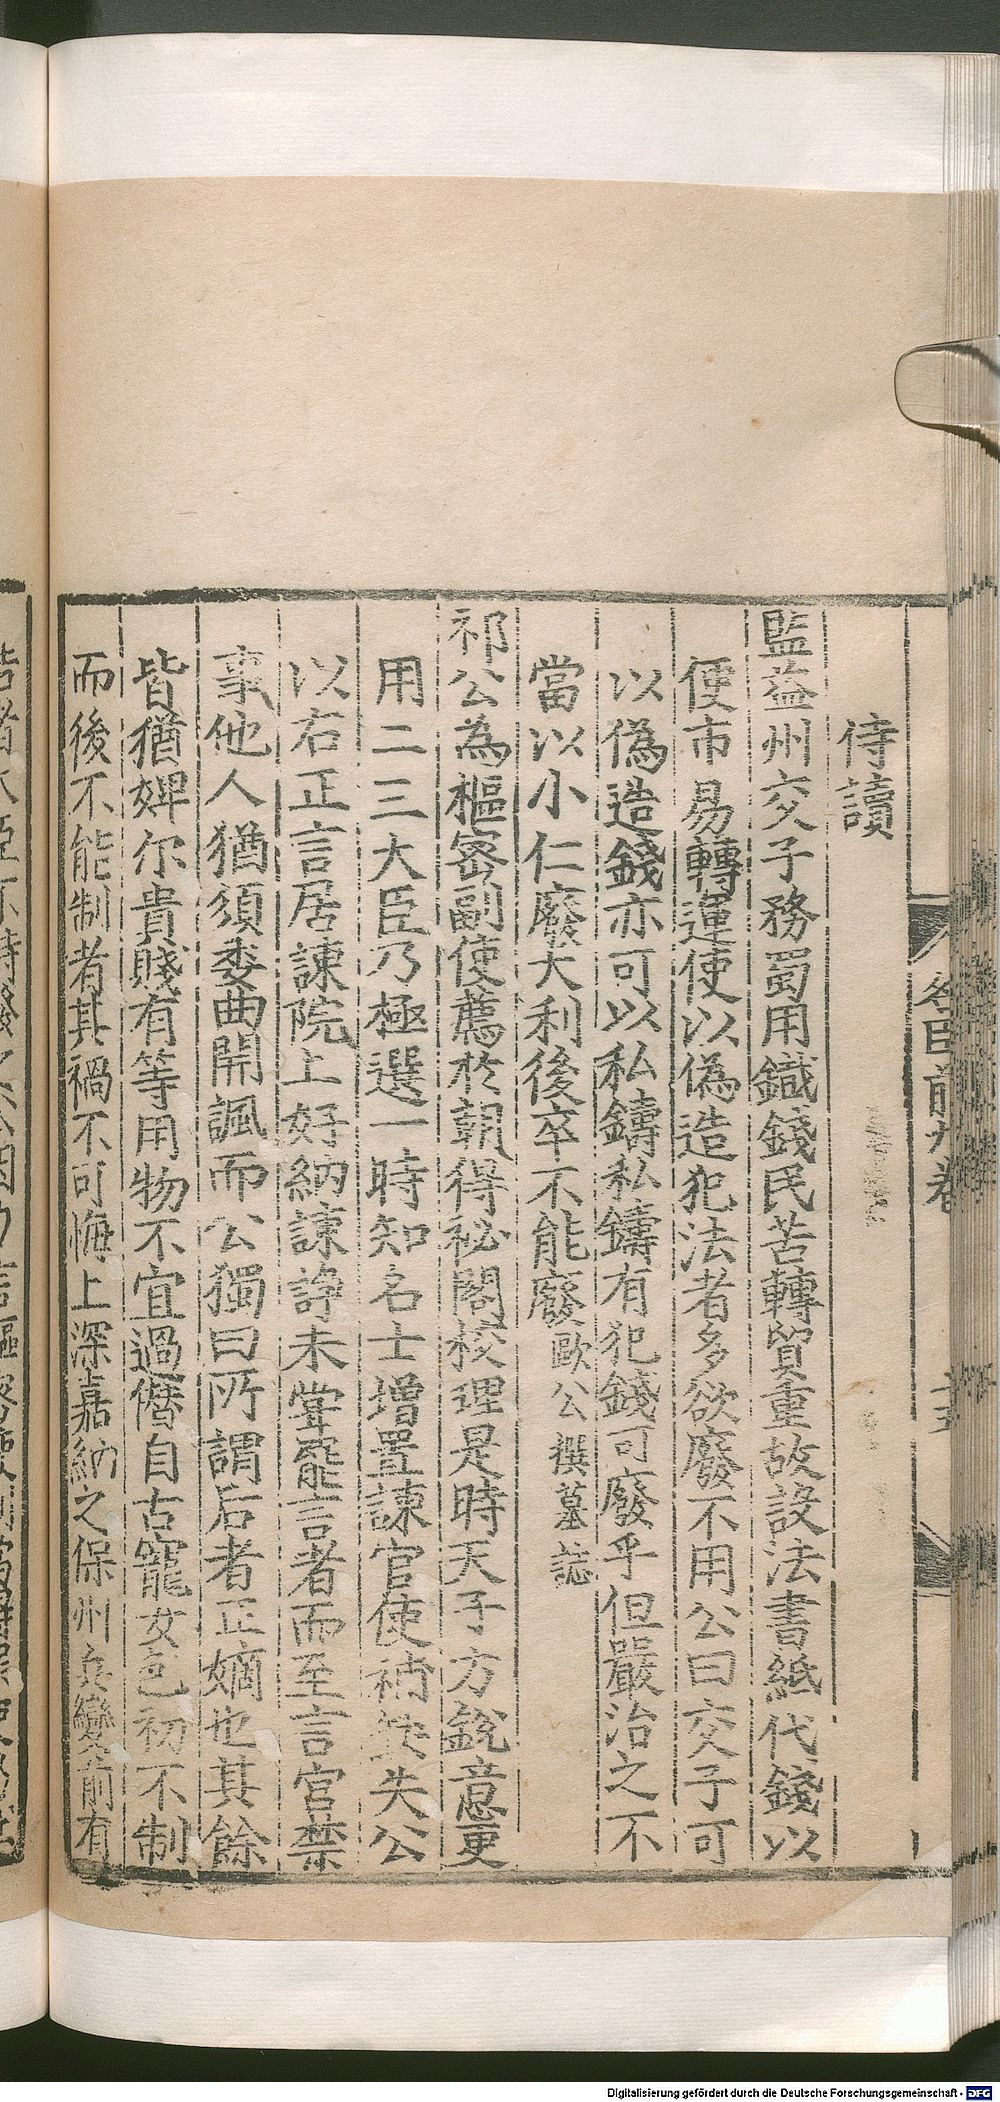 侍讀
監益州交子務蜀用鐵錢民苦轉貿重故設法書紙代錢以
便市易轉運使以偽造犯法者多欲廢不用公曰交子可
以偽造錢亦可以私鑄私鑄有犯錢可廢乎但嚴治之不
當以小仁廢大利後卒不能廢歐公撰墓誌
祁公為樞密副使薦於朝得祕閣校理是時天子方銳意更
用二三大臣乃極選一時知名士增置諫官使補闕失公
以右正言居諫院上好納諫諍未甞罷言者而至言宮禁
事他人猶須委曲開諷而公獨曰所謂后者正嫡也其餘
皆猶婢尔貴賤有等用物不宜過僭自古寵女色初不制
而後不能制者其禍不可悔上深嘉納之保州兵變前有
名臣前九卷
Digitalisierung gefördert durch die Deutsche Forschungsgemeinschaft - DFG